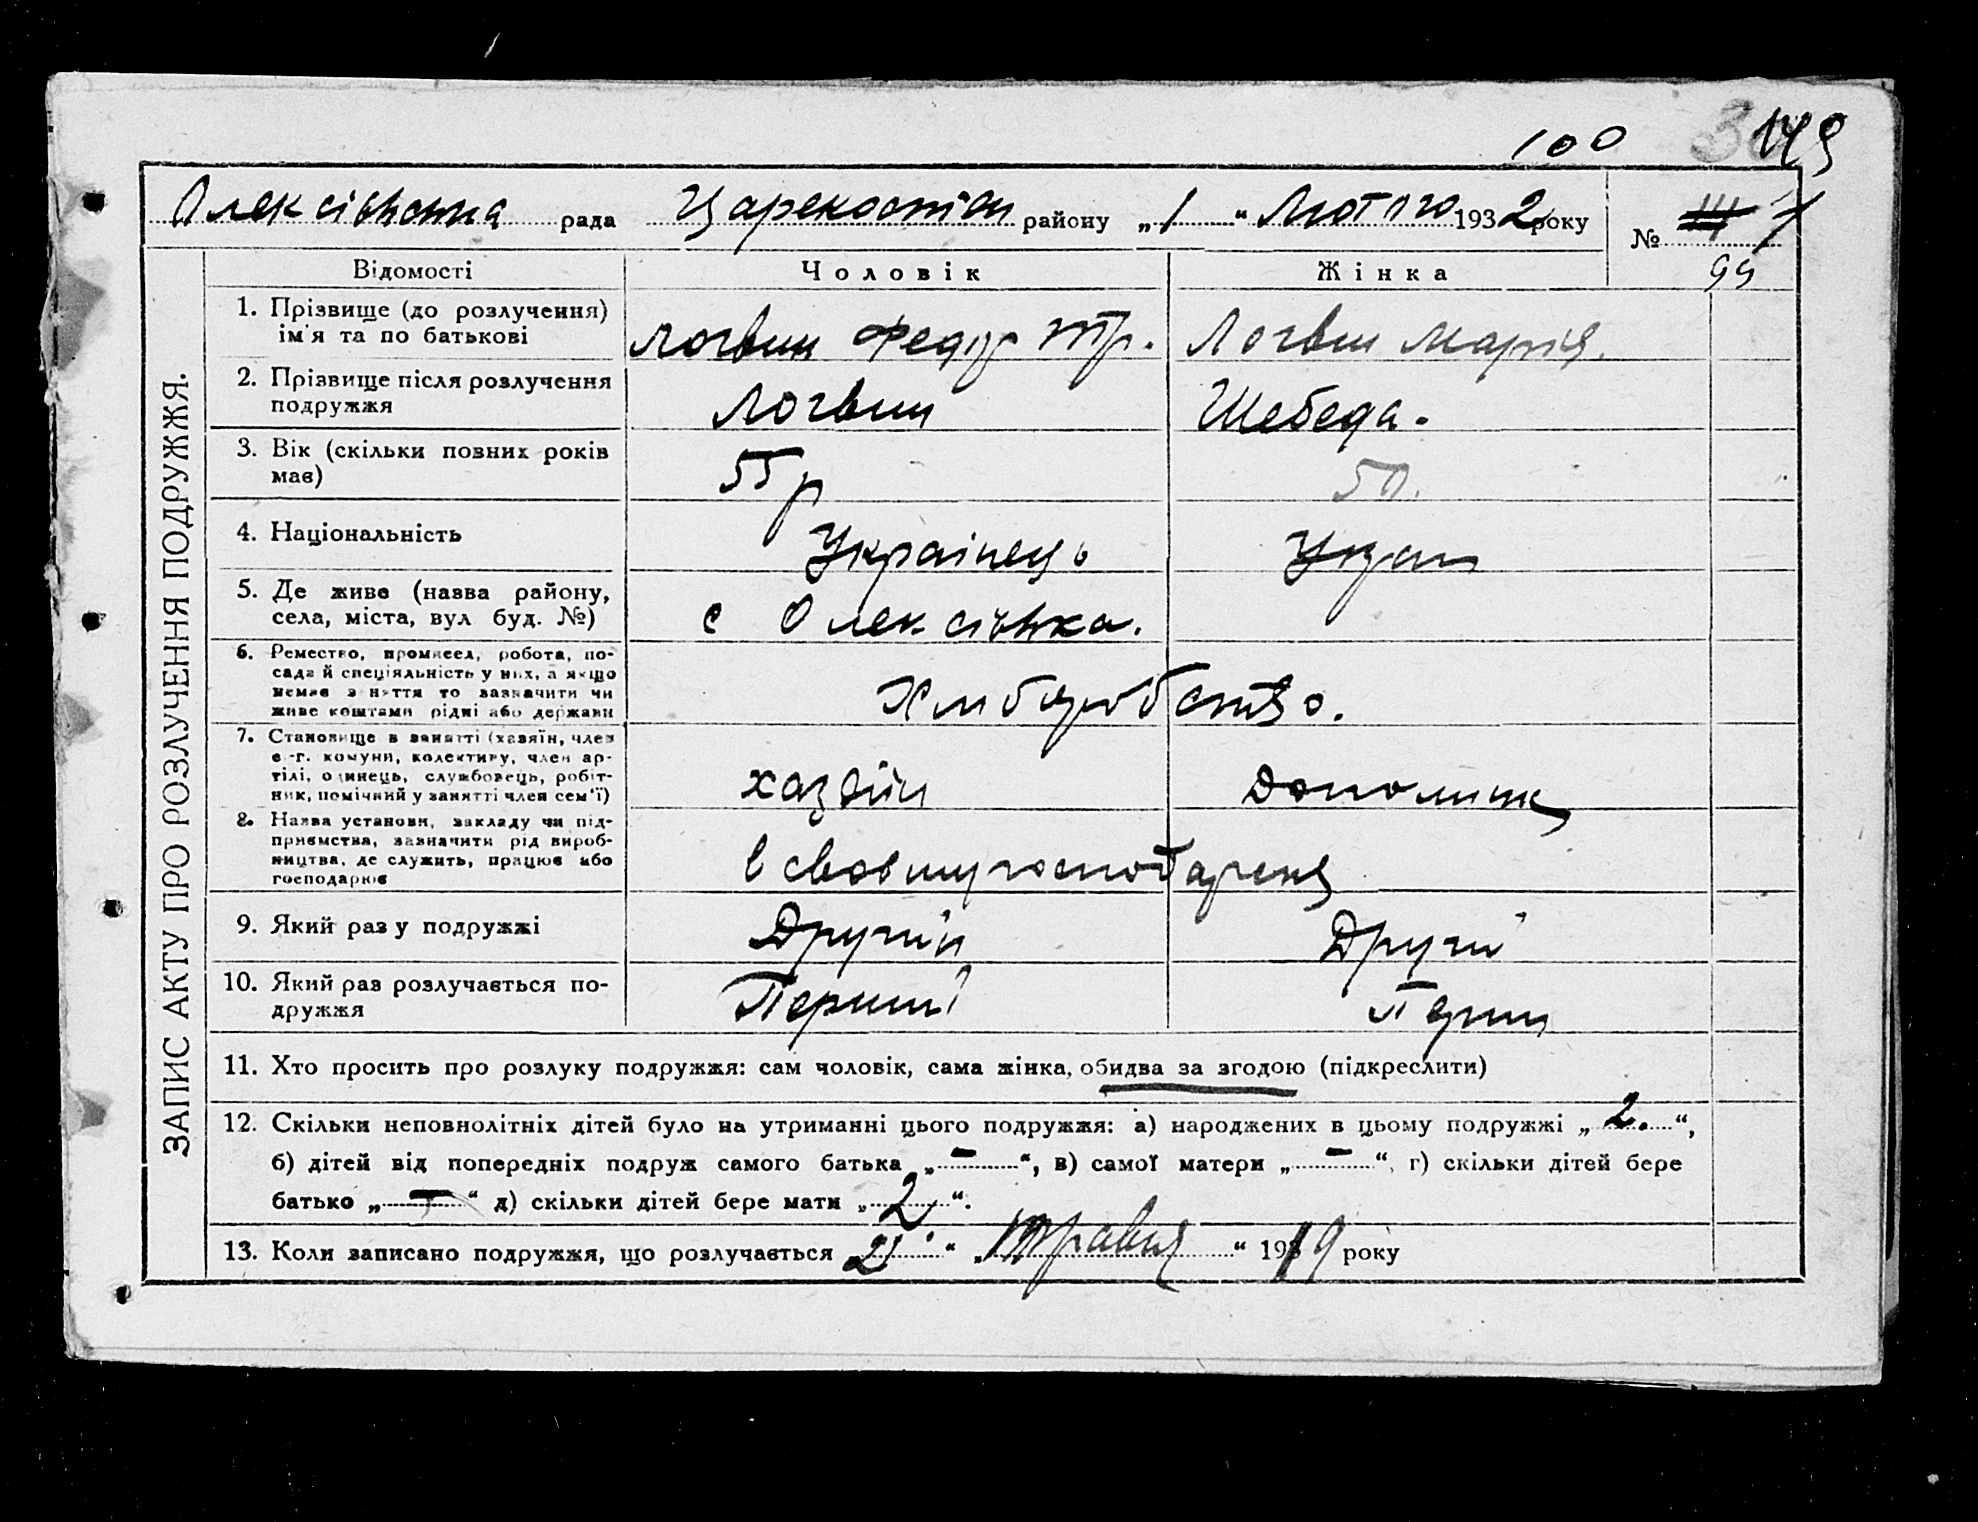 100 149
Олексіівська рада Царекостін району „1“ Лютого 1932 року
№ 7
99
ЗАПИС АКТУ ПРО РОЗЛУЧЕННЯ ПОДРУЖЖЯ.
Відомості Чоловік Жінка
1. Прізвище (до розлучення) ім'я та по батькові Логвин Федір Логвин Марія.
2. Прізвище після розлучення подружжя Логвин Шебеда.
3. Вік (скільки повних років має) 55 р 50.
4. Національність Українець Укра
5. Де живе (назва району, села, міста, вул буд. №) с Олексіівка.
6. Ремество, промисел, робота, посада й спеціяльність у них, а якщо немає заняття то зазначити чи живе коштами рідні або держави Хлиборобство.
7. Становище в занятті (хазяїн, член с.-г. комуни, колективу, член артілі, одинець, службовець, робітник, помічний у занятті член сем'ї) хазяїн
8. Назва установи, закладу чи підприємства, зазначити рід виробництва, де служить, працює або господарює в своєму господарстві
9. Який раз у подружжі Другий Другий
10. Який раз розлучається подружжя Перший Перши
11. Хто просить про розлуку подружжя: сам чоловік, сама жінка, обидва за згодою (підкреслити)
12. Скільки неповнолітніх дітей було на утриманні цього подружжя: а) народжених в цьому подружжі „2.“,
б) дітей від попередніх подруж самого батька „—“, в) самої матери „—“, г) скільки дітей бере
батько „—“ д) скільки дітей бере мати „2“.
13. Коли записано подружжя, що розлучається 21 “ „Травня“ 1919 року